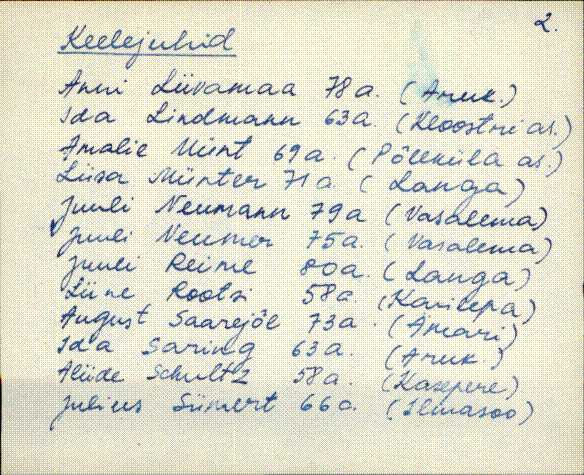 2.
Keelejuhid
Anni Liivamaa 78 a. (Aruk.)
Ida Lindmann 63 a. (Kloostri as.)
Amalie Münt 69 a. (Põllküla as.)
Liisa Münter 71 a. (Langa)
Juuli Neumann 79 a (Vasalema)
Juuli Neumer 75 a. (Vasalema)
Juuli Reime 80 a. (Langa)
Liine Rootsi 58 a (Karilepa)
August Saarejõe 73 a. (Ämari)
Ida Saring 63 a. (Aruk.)
Aliide Schultz 58 a. (Kasepere)
Julius Sümert 66 a. (Ilmasoo)